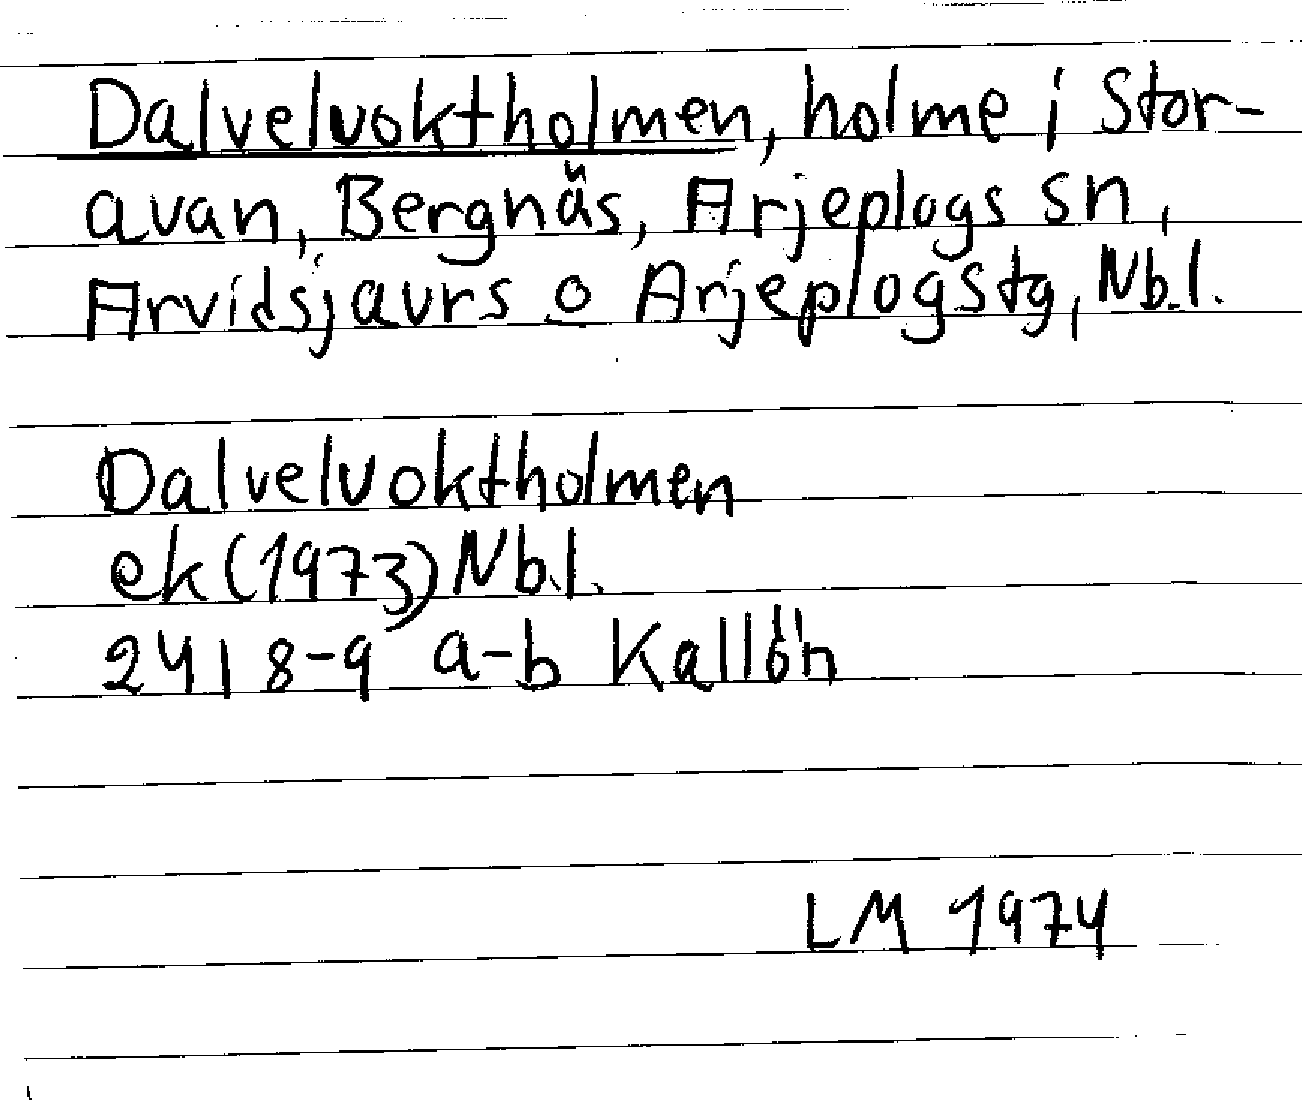 Dalvelvoktholmen, holme i Stor-
avan, Bergnäs, Arjeplogs sn,
Arvidsjaurs o Arjeplogstg, Nb.l.
Dalvelvoktholmen
ek (1973) Nb.l.
24 I 8-9 a-b Kallön
LM 1974